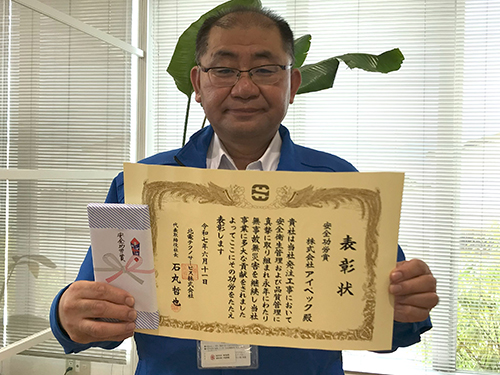 表彰状
安全功労賞
株式会社アイペック殿
貴社は当社発注工事において
安全衛生管理および品質管理に
真摯に取り組み永年にわたり
無事故無災害を継続し当社
事業に多大な貢献をされました
よってここにその功労をたたえ
表彰します
令和七年六月十一日
北電テクノサービス株式会社
代表取締役社長 石丸哲也
安全功労賞